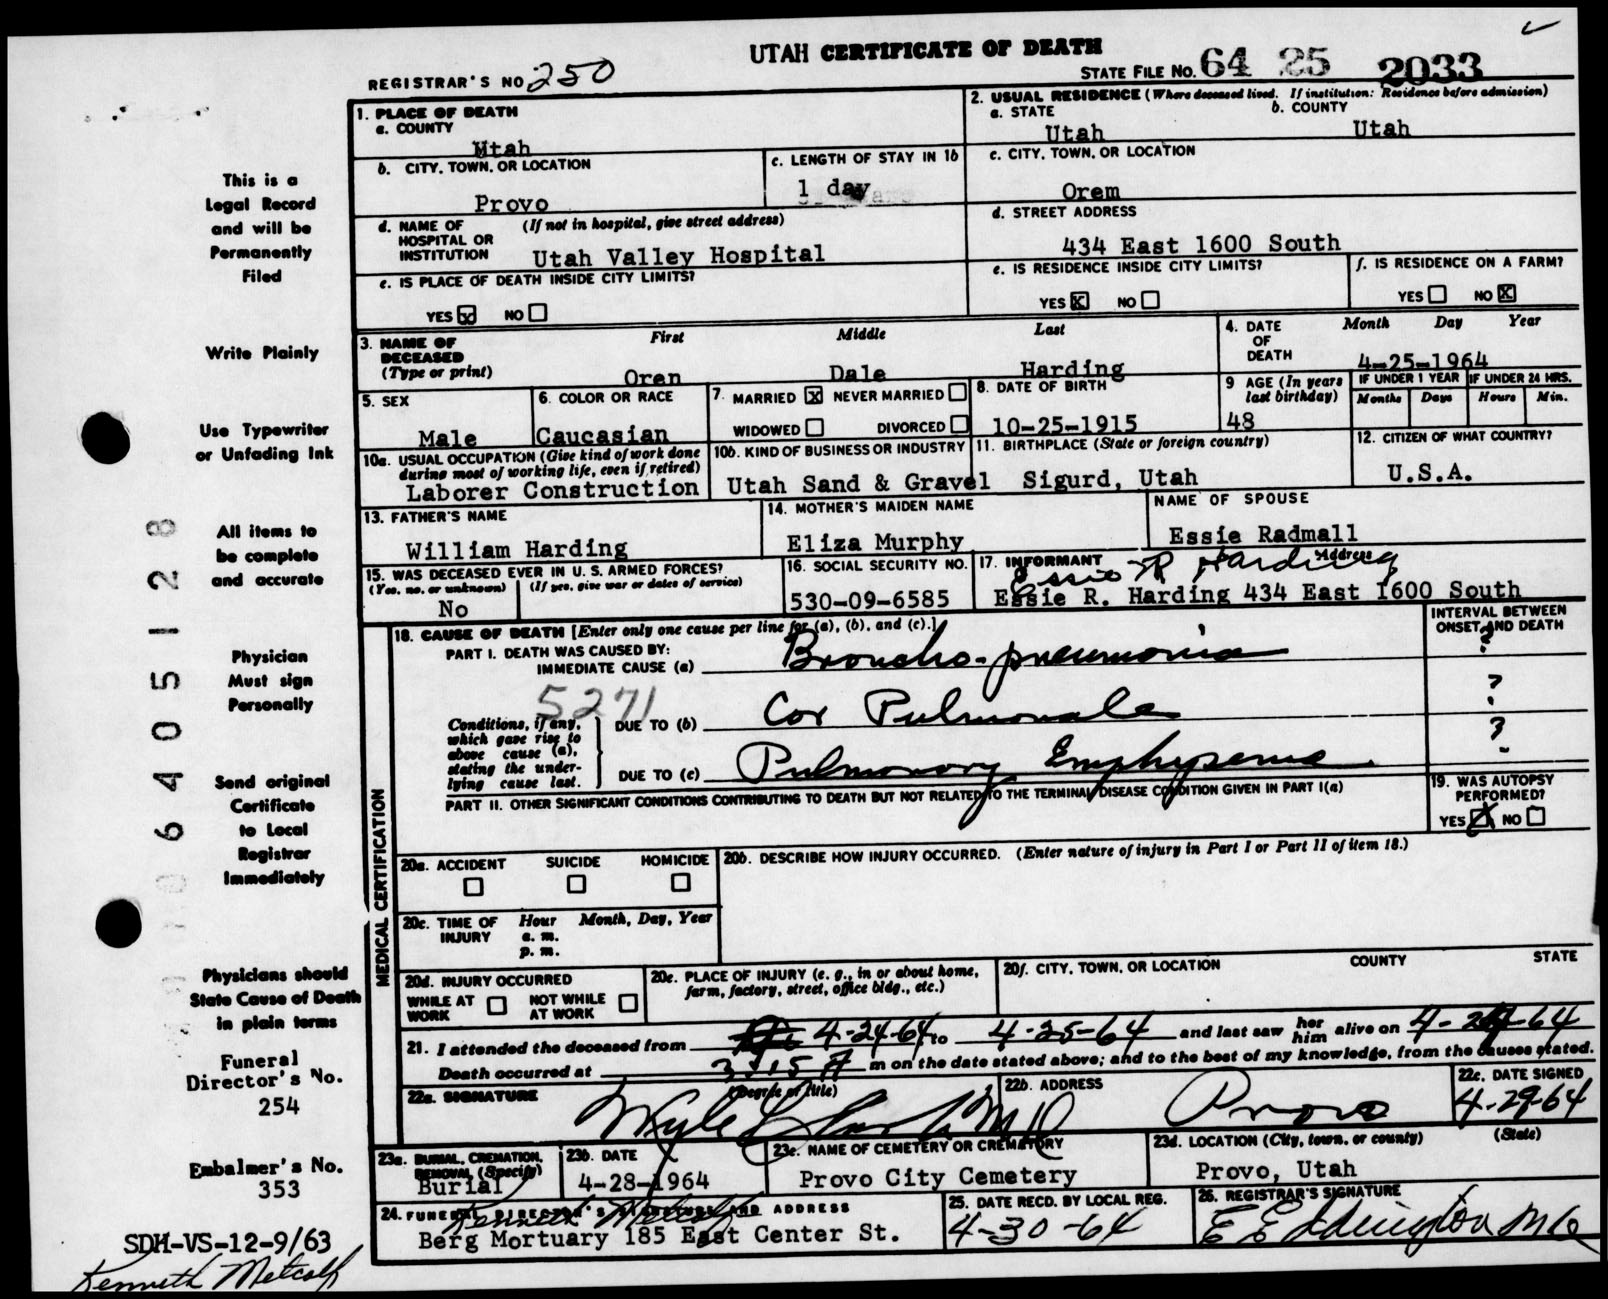 UTAH CERTIFICATE OF DEATH
REGISTRAR'S NO 250
STATE FILE NO. 64 25 2033
1. PLACE OF DEATH
a. COUNTY
Utah
2. USUAL RESIDENCE (Where deceased lived. If institution: Residence before admission)
a. STATE b. COUNTY
Utah Utah
b. CITY, TOWN, OR LOCATION
Provo
c. LENGTH OF STAY IN 1b
1 day
c. CITY, TOWN, OR LOCATION
Orem
d. NAME OF HOSPITAL OR INSTITUTION (If not in hospital, give street address)
Utah Valley Hospital
d. STREET ADDRESS
434 East 1600 South
e. IS PLACE OF DEATH INSIDE CITY LIMITS?
YES X NO
e. IS RESIDENCE INSIDE CITY LIMITS?
YES X NO
f. IS RESIDENCE ON A FARM?
YES NO X
3. NAME OF DECEASED (Type or print)
First Middle Last
Oren Dale Harding
4. DATE OF DEATH
Month Day Year
4-25-1964
5. SEX
Male
6. COLOR OR RACE
Caucasian
7. MARRIED X NEVER MARRIED
WIDOWED DIVORCED
8. DATE OF BIRTH
10-25-1915
9 AGE (In years last birthday)
48
IF UNDER 1 YEAR IF UNDER 24 HRS.
Months Days Hours Min.
10a. USUAL OCCUPATION (Give kind of work done during most of working life, even if retired)
Laborer Construction
10b. KIND OF BUSINESS OR INDUSTRY
Utah Sand & Gravel
11. BIRTHPLACE (State or foreign country)
Sigurd, Utah
12. CITIZEN OF WHAT COUNTRY?
U.S.A.
13. FATHER'S NAME
William Harding
14. MOTHER'S MAIDEN NAME
Eliza Murphy
NAME OF SPOUSE
Essie Radmall
15. WAS DECEASED EVER IN U. S. ARMED FORCES?
(Yes, no, or unknown) (If yes, give war or dates of service)
No
16. SOCIAL SECURITY NO.
530-09-6585
17. INFORMANT Address
Essie R Harding
Essie R. Harding 434 East 1600 South
MEDICAL CERTIFICATION
18. CAUSE OF DEATH [Enter only one cause per line for (a), (b), and (c).]
INTERVAL BETWEEN ONSET AND DEATH
PART I. DEATH WAS CAUSED BY:
IMMEDIATE CAUSE (a) Broncho-pneumonia ?
5271
Conditions, if any, which gave rise to above cause (a), stating the underlying cause last.
DUE TO (b) Cor Pulmonale ?
DUE TO (c) Pulmonary Emphysema ?
PART II. OTHER SIGNIFICANT CONDITIONS CONTRIBUTING TO DEATH BUT NOT RELATED TO THE TERMINAL DISEASE CONDITION GIVEN IN PART I(a)
19. WAS AUTOPSY PERFORMED?
YES X NO
20a. ACCIDENT SUICIDE HOMICIDE
20b. DESCRIBE HOW INJURY OCCURRED. (Enter nature of injury in Part I or Part II of item 18.)
20c. TIME OF INJURY Hour Month, Day, Year
a. m.
p. m.
20d. INJURY OCCURRED
WHILE AT WORK NOT WHILE AT WORK
20e. PLACE OF INJURY (e. g., in or about home, farm, factory, street, office bldg., etc.)
20f. CITY, TOWN, OR LOCATION COUNTY STATE
21. I attended the deceased from 4-24-64 to 4-25-64 and last saw her him alive on 4-24-64
Death occurred at 3:15 A m on the date stated above; and to the best of my knowledge, from the causes stated.
22a. SIGNATURE (Degree or title)
22b. ADDRESS
Provo
22c. DATE SIGNED
4-29-64
23a. BURIAL, CREMATION, REMOVAL (Specify)
Burial
23b. DATE
4-28-1964
23c. NAME OF CEMETERY OR CREMATORY
Provo City Cemetery
23d. LOCATION (City, town, or county) (State)
Provo, Utah
24. FUNERAL DIRECTOR'S SIGNATURE AND ADDRESS
Kenneth Metcalf
Berg Mortuary 185 East Center St.
25. DATE RECD. BY LOCAL REG.
4-30-64
26. REGISTRAR'S SIGNATURE
E E Eddington MD
This is a
Legal Record
and will be
Permanently
Filed
Write Plainly
Use Typewriter
or Unfading Ink
All items to
be complete
and accurate
Physician
Must sign
Personally
Send original
Certificate
to Local
Registrar
Immediately
Physicians should
State Cause of Death
in plain terms
Funeral
Director's No.
254
Embalmer's No.
353
SDH-VS-12-9/63
Kenneth Metcalf